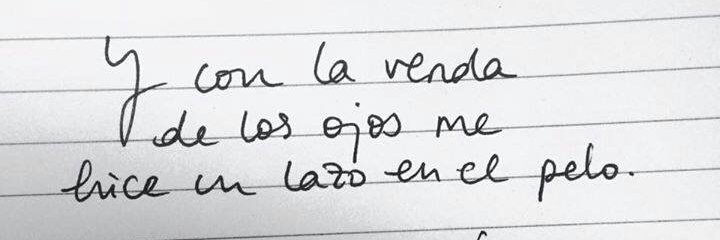 Y con la venda
de los ojos me
hice un lazo en el pelo.